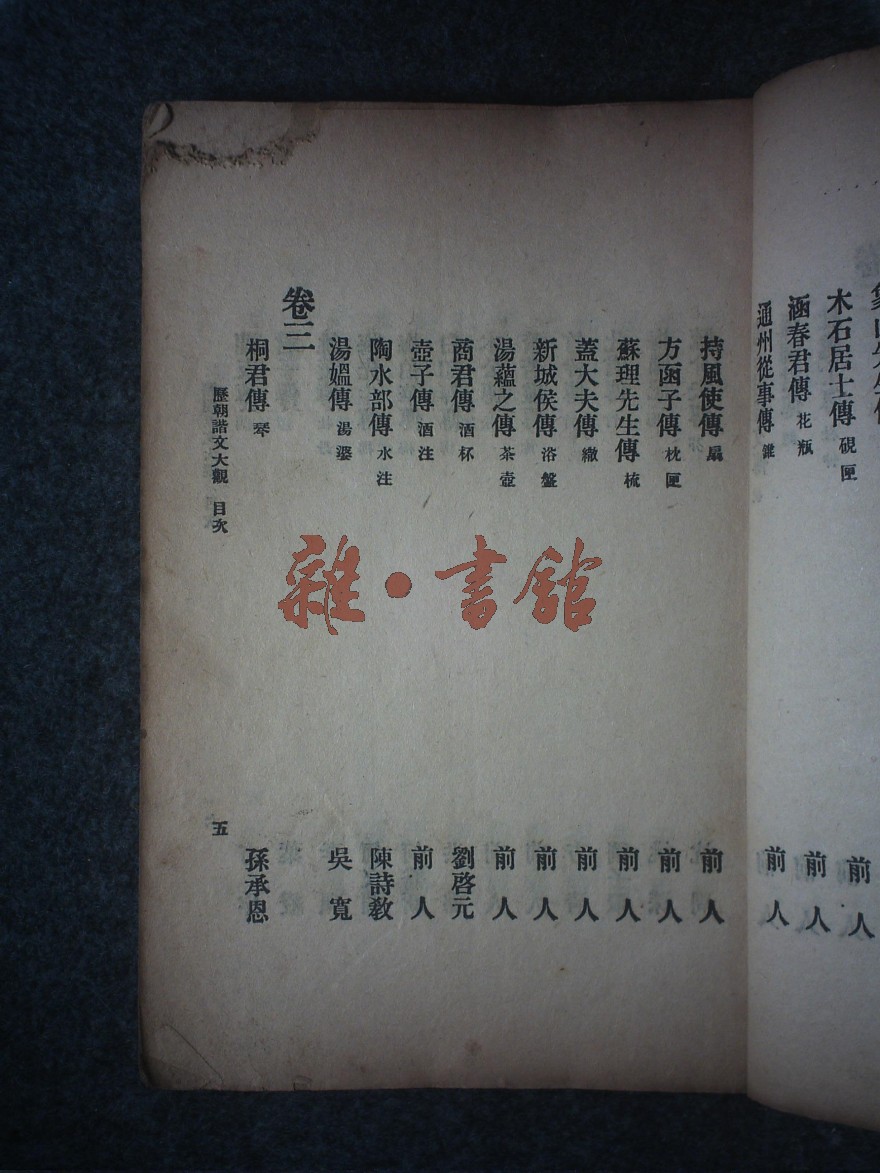 木石居士傳 硯匣 前人
涵春君傳 花瓶 前人
通州從事傳 錐 前人
持風使傳 扇 前人
方函子傳 枕匣 前人
蘇理先生傳 梳 前人
蓋大夫傳 繖 前人
新城侯傳 浴盤 前人
湯蘊之傳 茶壺 前人
商君傳 酒杯 劉啓元
壺子傳 酒注 前人
陶水部傳 水注 陳詩教
湯媼傳 湯婆 吳寬
卷三
桐君傳 琴 孫承恩
歷朝諧文大觀 目次 五
雜·書館